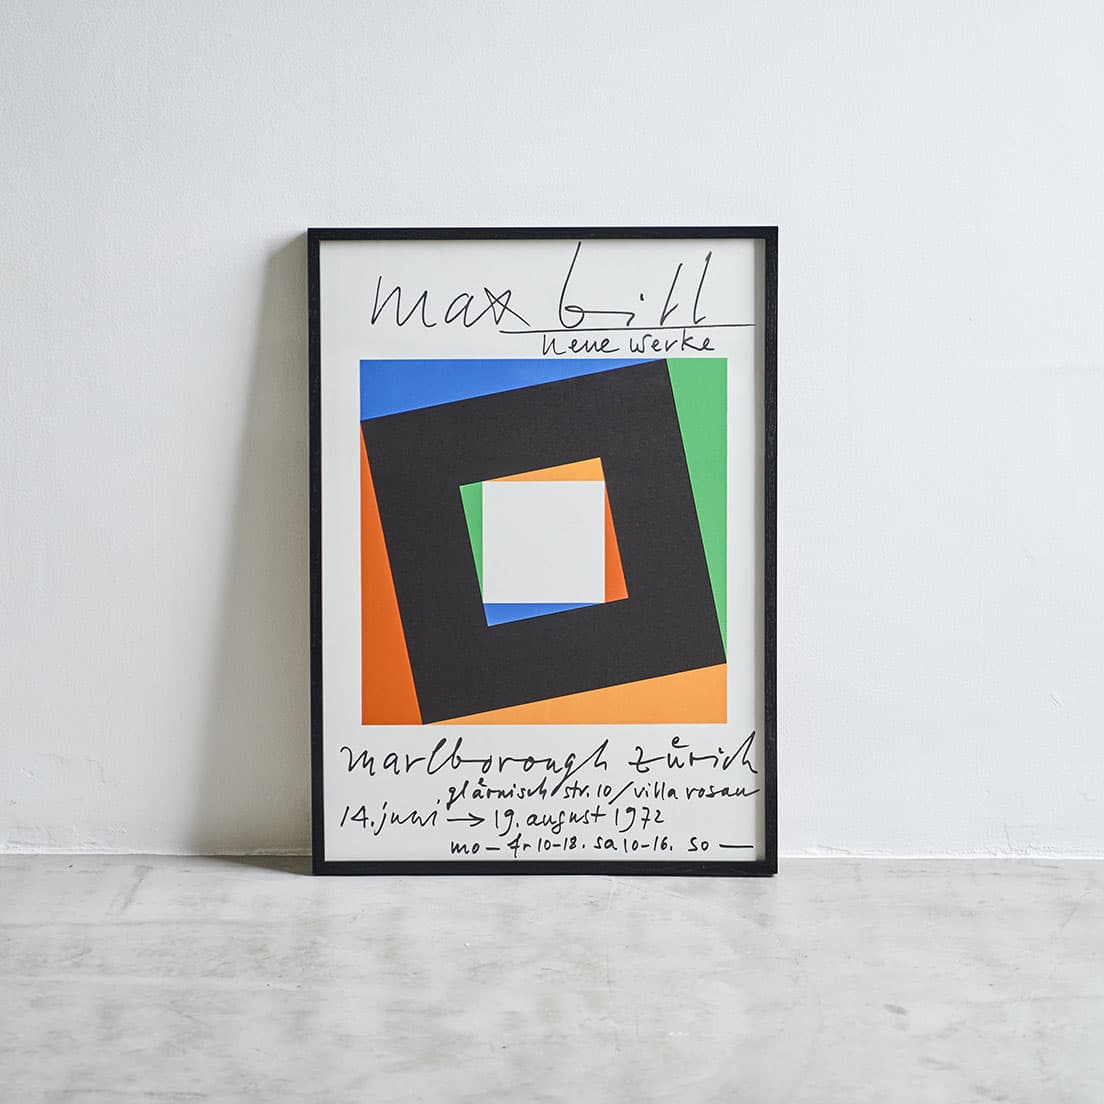 max bill
neue werke
marlborough zürich
glärnisch str. 10 / villa rosau
14. juni → 19. august 1972
mo – fr 10-18. sa 10-16. so —